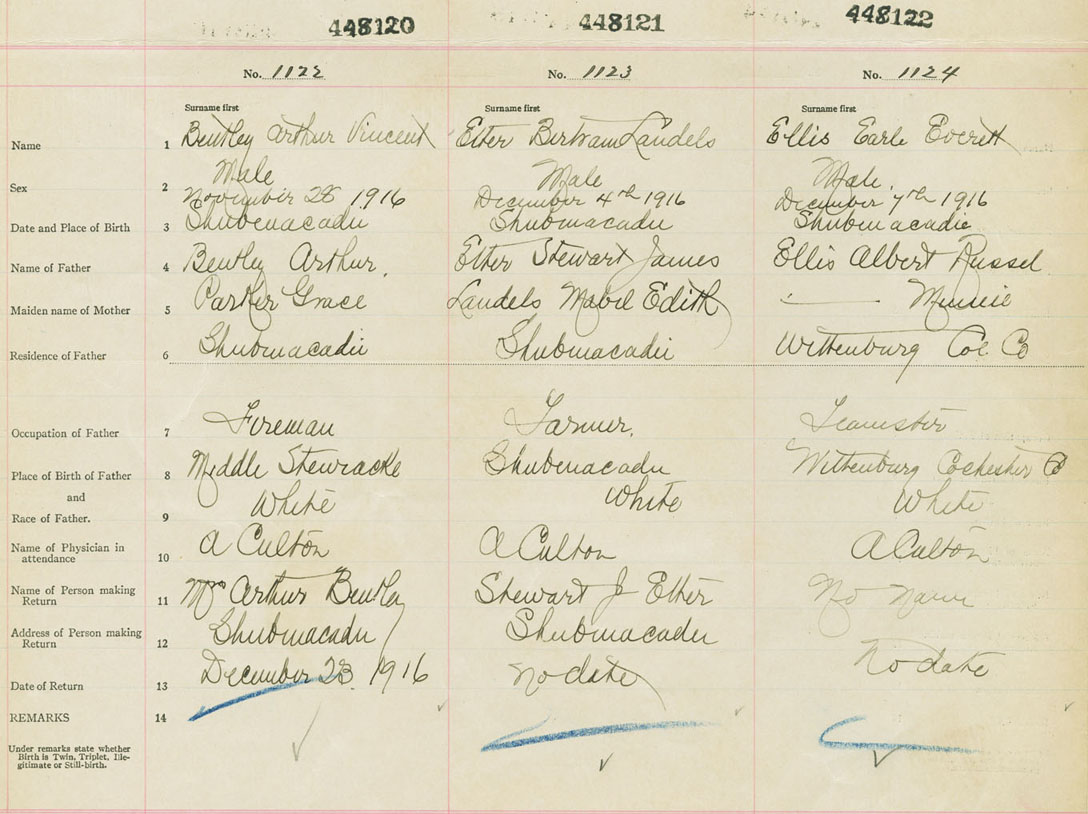 448120 448121 448122
No. 1122 No. 1123 No. 1124
Surname first Surname first Surname first
Name 1 Bentley Arthur Vincent Etter Bertram Landels Ellis Earle Everett
Sex 2 Male Male Male.
November 28 1916 December 4th 1916 December 7th 1916
Date and Place of Birth 3 Shubenacadie Shubenacadie Shubenacadie
Name of Father 4 Bentley Arthur. Etter Stewart James Ellis Albert Russel
Maiden name of Mother 5 Parker Grace Landels Mabel Edith — Minnie
Residence of Father 6 Shubenacadie Shubenacadie Wittenburg Col. Co
Occupation of Father 7 Fireman Farmer. Teamster
Place of Birth of Father 8 Middle Stewiacke Shubenacadie Wittenburg Colchester Co
and
Race of Father. 9 White White White
Name of Physician in attendance 10 A Culton A Culton A Culton
Name of Person making Return 11 Mrs Arthur Bentley Stewart J Etter No Name
Address of Person making Return 12 Shubenacadie Shubenacadie
Date of Return 13 December 23. 1916 No date No date
REMARKS 14
Under remarks state whether
Birth is Twin, Triplet, Ille-
gitimate or Still-birth.